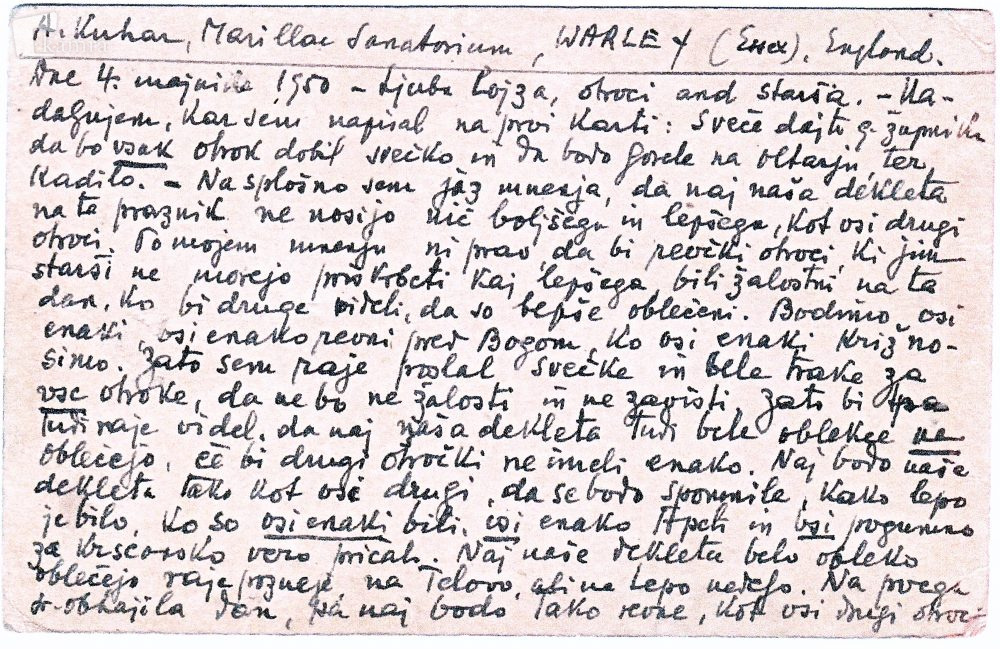 A. Kuhar, Marillac Sanatorium, WARLEY (Essex), England.
Dne 4. majnika 1950 – Ljuba Lojza, otroci and starša. – Na-
daljujem, kar sem napisal na prvi karti: Sveče dajte g. župniku
da bo vsak otrok dobil svečko in da bodo gorele na oltarju ter
kadilo. – Na splošno sem jaz mnenja, da naj naša dekleta
na ta praznik ne nosijo nič boljšega in lepšega, kot vsi drugi
otroci. Po mojem mnenju ni prav, da bi revčki otroci, ki jim
starši ne morejo priskrbeti kaj lepšega, bili žalostni na ta
dan, ko bi druge videli, da so lepše oblečeni. Bodimo vsi
enaki, vsi enako revni pred Bogom, ko vsi enaki križ no-
simo. Zato sem raje poslal svečke in bele trake za
vse otroke, da ne bo ne žalosti in ne zavisti. Zato bi
tudi raje videl, da naj naša dekleta tudi bele oblekce ne
oblečejo, če bi drugi otročki ne imeli enako. Naj bodo naše
dekleta tako kot vsi drugi, da se bodo spomnile, kako lepo
je bilo, ko so vsi enaki bili, vsi enako trpeli in vsi pogumno
za krščansko vero pričali. Naj naše dekleta belo obleko
oblečejo raje pozneje na Telovo, ali na lepo nedeljo. Na prvega
sv. obhajila dan, pa naj bodo tako revne, kot vsi drugi otroci